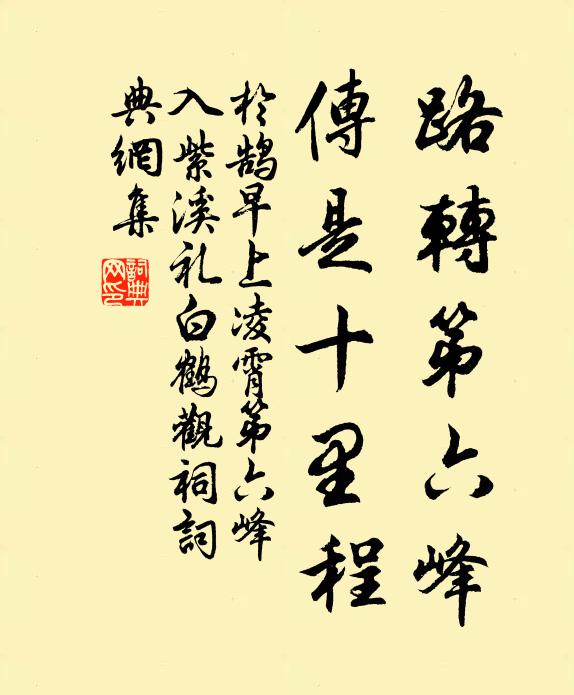 路轉第六峰
傳是十里程
於鵠早上凌霄第六峰
入紫溪礼白鶴觀祠詞
典網集
詞典
网印